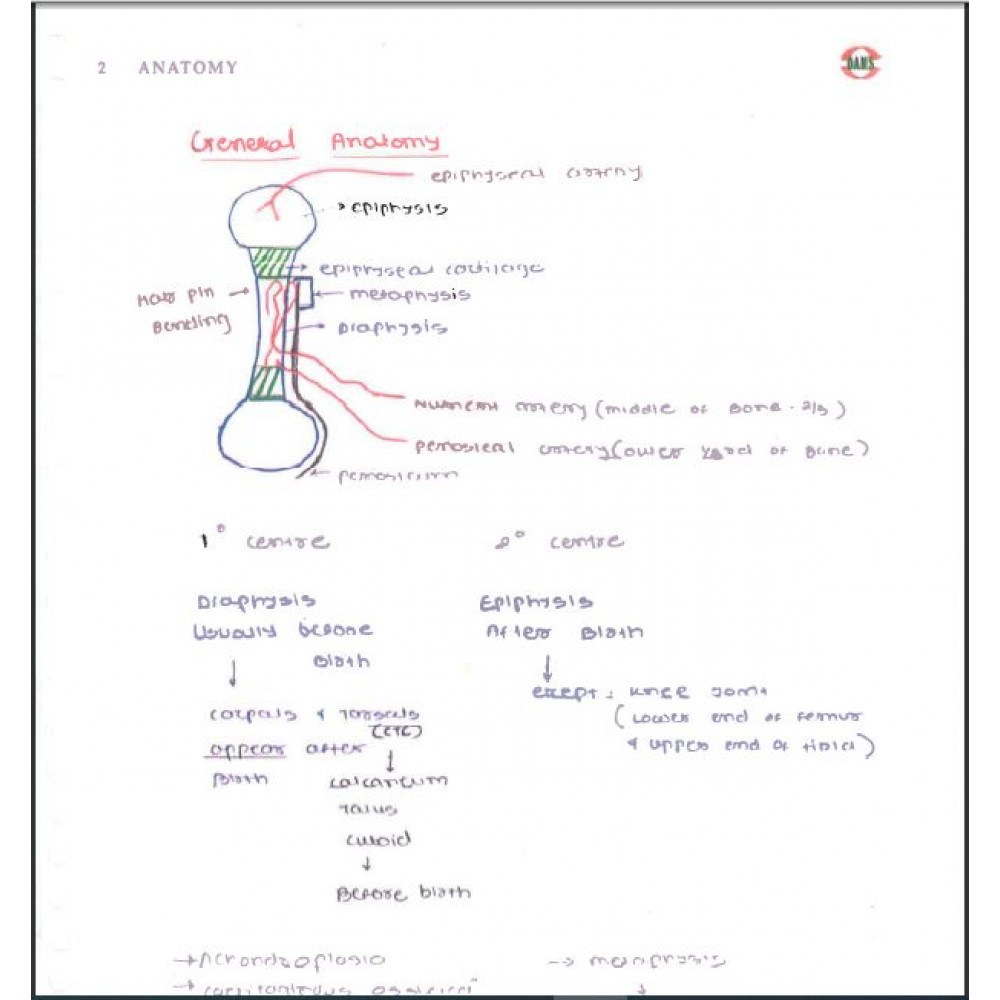 2 ANATOMY
DAMS
General Anatomy
epiphyseal artery
epiphysis
epiphyseal cartilage
Hair pin
Bending
metaphysis
Diaphysis
Nutrient artery (middle of Bone - 2/3)
periosteal artery (lower of Bone)
periosteum
1° centre
2° centre
Diaphysis
Usually before
Birth
Epiphysis
After Birth
carpals & Tarsals
(CTC)
appear after
Birth
except : knee joint
(Lower end of femur
& upper end of tibia)
calcaneum
Talus
cuboid
Before birth
→ Achondroplasia
→ metaphysis